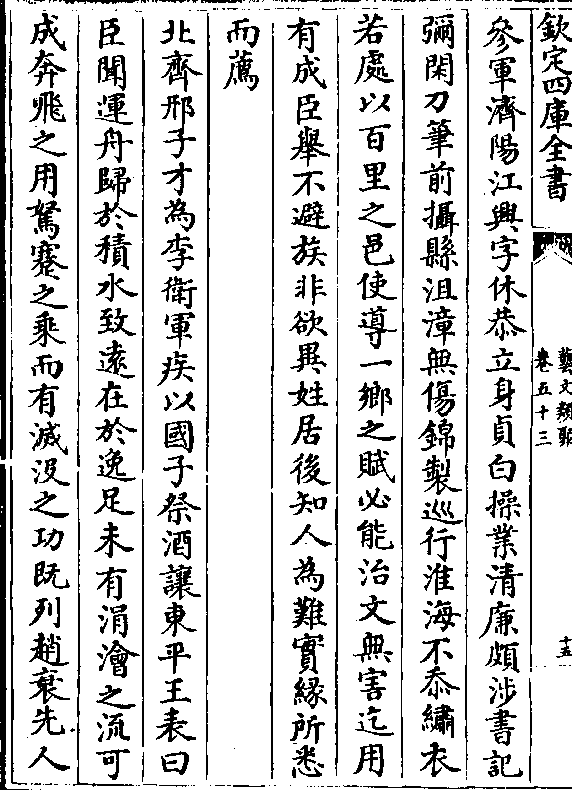 欽定四庫全書
藝文類聚
卷五十三
十五
參軍濟陽江興字休恭立身貞白操業清廉頗涉書記
彌閑刀筆前攝縣沮漳無傷錦製巡行淮海不忝繡衣
若處以百里之邑使導一鄉之賦必能治文無害迄用
有成臣舉不避族非欲異姓居後知人為難實緣所悉
而薦
北齊邢子才為李衛軍疾以國子祭酒讓東平王表曰
臣聞運舟歸於積水致遠在於逸足未有涓澮之流可
成奔飛之用駑蹇之乘而有滅沒之功既列趙衰先人